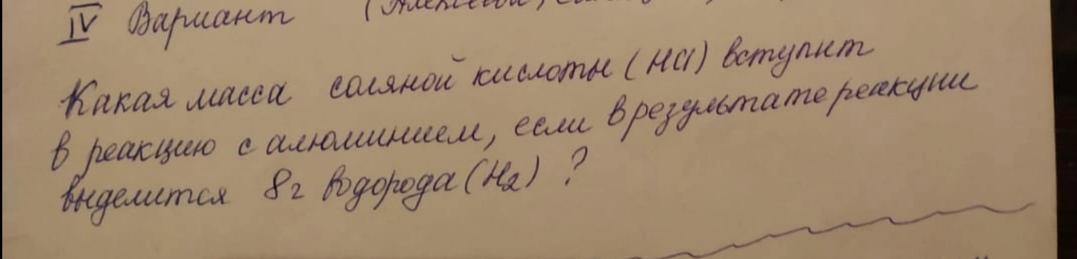 IV Вариант
Какая масса соляной кислоты (HCl) вступит
в реакцию с алюминием, если в результате реакции
выделится 8г водорода (H2) ?